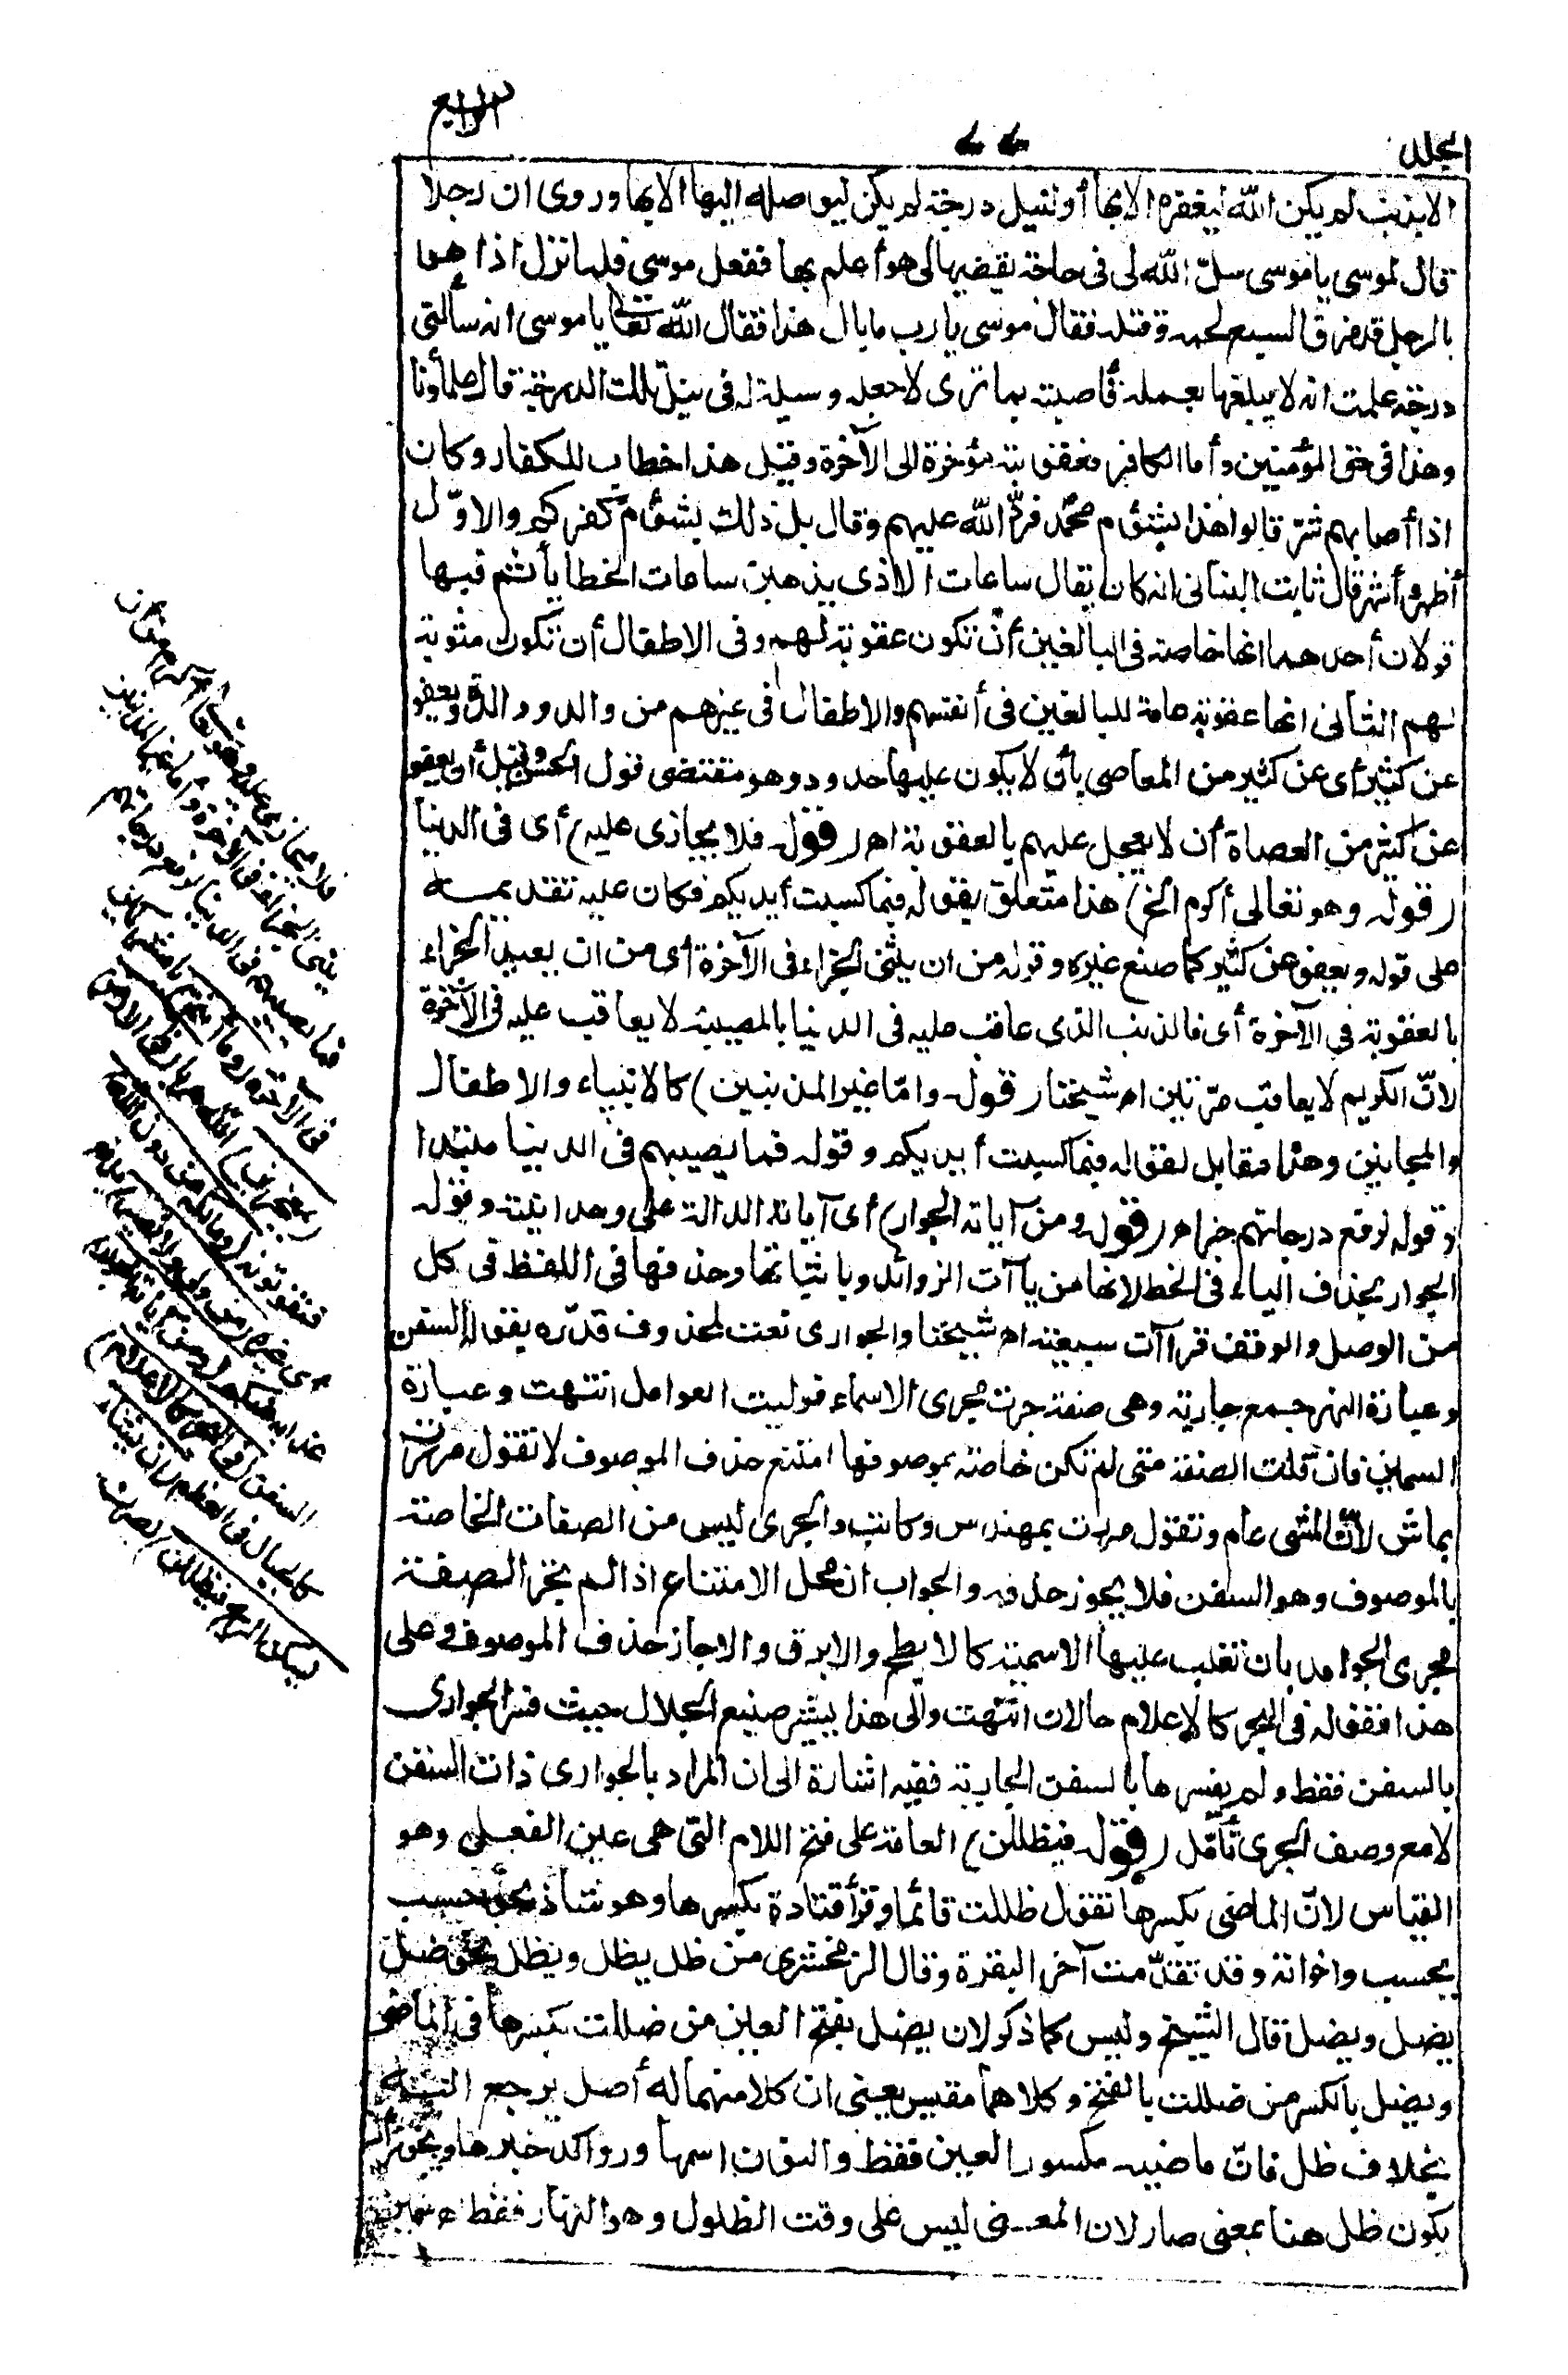 المجلد
٦٦
الرابع
الا بذنب لم يكن الله ليغفره الا بها أو لنيل درجة لم يكن ليوصله اليها الا بها وروى ان رجلا
قال لموسى يا موسى سل الله لى فى حاجة يقضيها لى هو أعلم بها ففعل موسى فلما نزل اذا هو
بالرجل قد مزق السبع لحمه وقتله فقال موسى يا رب ما بال هذا فقال الله تعالى يا موسى انه سألنى
درجة علمت انه لا يبلغها بعمله فأصبته بما ترى لاجعله وسيلة له فى نيل تلك الدرجة قال علماؤنا
وهذا فى حق المؤمنين وأما الكافر فعقوبته مؤخرة الى الآخرة وقيل هذا خطاب للكفار وكان
اذا أصابهم شر قالوا هذا بشؤم محمد فردّ الله عليهم وقال بل ذلك بشؤم كفركم والاوّل
أظهر وأشهر قال ثابت البنانى انه كان يقال ساعات الاذى يذهبن ساعات الخطايا ثم فيها
قولان أحدهما انها خاصة فى البالغين أن تكون عقوبة لهم وفى الاطفال أن تكون مثوبة
لهم الثانى انها عقوبة عامة للبالغين فى أنفسهم والاطفال فى غيرهم من والد ووالدة ويعفو
عن كثير أى عن كثير من المعاصى بأن لا يكون عليها حدود وهو مقتضى قول الحسن وقيل أى يعفو
عن كثير من العصاة أن لا يعجل عليهم بالعقوبة اه (قوله فلا يجازى عليه) أى فى الدنيا
(قوله وهو تعالى أكرم الخ) هذا متعلق بقوله فبما كسبت أيديكم فكان عليه تقديمه
على قوله ويعفو عن كثير كما صنع غيره وقوله من ان يثنى الجزاء فى الآخرة أى من ان يعيد الجزاء
بالعقوبة فى الآخرة أى فالذنب الذى عاقب عليه فى الدنيا بالمصيبة لا يعاقب عليه فى الآخرة
لانّ الكريم لا يعاقب مرّتين اه شيخنا (قوله وامّا غير المذنبين) كالانبياء والاطفال
والمجانين وهذا مقابل لقوله فبما كسبت أيديكم وقوله فما يصيبهم فى الدنيا مبتدا
وقوله لرفع درجاتهم خبر اه (قوله ومن آياته الجوار) أى آياته الدالة على وحدانيته وقوله
الجوار بحذف الياء فى الخط لانها من ياآت الزوائد وباثباتها وحذفها فى اللفظ فى كل
من الوصل والوقف قراآت سبعية اه شيخنا والجوارى نعت لمحذوف قدّره بقوله السفن
وعبارة النهر جمع جارية وهى صفة جرت مجرى الاسماء فوليت العوامل انتهت وعبارة
السمين فان قلت الصفة متى لم تكن خاصة بموصوفها امتنع حذف الموصوف لا تقول مررت
بماش لأنّ المشى عام وتقول مررت بمهندس وكاتب والجرى ليس من الصفات الخاصة
بالموصوف وهو السفن فلا يجوز حذفه والجواب ان محل الامتناع اذا لم تجر الصفة
مجرى الجوامد بان تغلب عليها الاسمية كالابطح والابرق والا جاز حذف الموصوف وعلى
هذا فقوله فى البحر كالاعلام حالان انتهت والى هذا يشير صنيع الجلال حيث فسر الجوارى
بالسفن فقط ولم يفسرها بالسفن الجارية ففيه اشارة الى ان المراد بالجوارى ذات السفن
لا مع وصف الجرى تأمّل (قوله فيظللن) العامة على فتح اللام التى هى عين الفعل وهو
القياس لانّ الماضى بكسرها تقول ظللت قائما وقرأ قتادة بكسرها وهو شاذ نحو حسب
يحسب واخواته وقد تقدّمت آخر البقرة وقال الزمخشرى من ظل يظل ويظل نحو ضل
يضل ويضل قال الشيخ وليس كما ذكر لان يضل بفتح العين من ضللت بكسرها فى الماضى
ويضل بالكسر من ضللت بالفتح وكلاهما مقيس يعنى ان كلا منهما له أصل يرجع اليه
بخلاف ظل فانّ ماضيه مكسور العين فقط والنون اسمها ورواكد خبرها ويجوز أن
يكون ظل هنا بمعنى صار لان المعنى ليس على وقت الظلول وهو النهار فقط اه سمين
فلا يجازى عليه وهو تعالى أكرم من أن
يثنى الجزاء فى الآخرة وأما غير المذنبين
فما يصيبهم فى الدنيا لرفع درجاتهم
فى الآخرة (وما أنتم) يا مشركين
(بمعجزين) الله هربا (فى الارض)
فتفوتونه (وما لكم من دون الله)
أى غيره (من ولى ولا نصير) يدفع
عذابه عنكم (ومن آياته الجوار)
السفن (فى البحر كالاعلام)
كالجبال فى العظم (ان يشأ
يسكن الريح فيظللن) يصرن